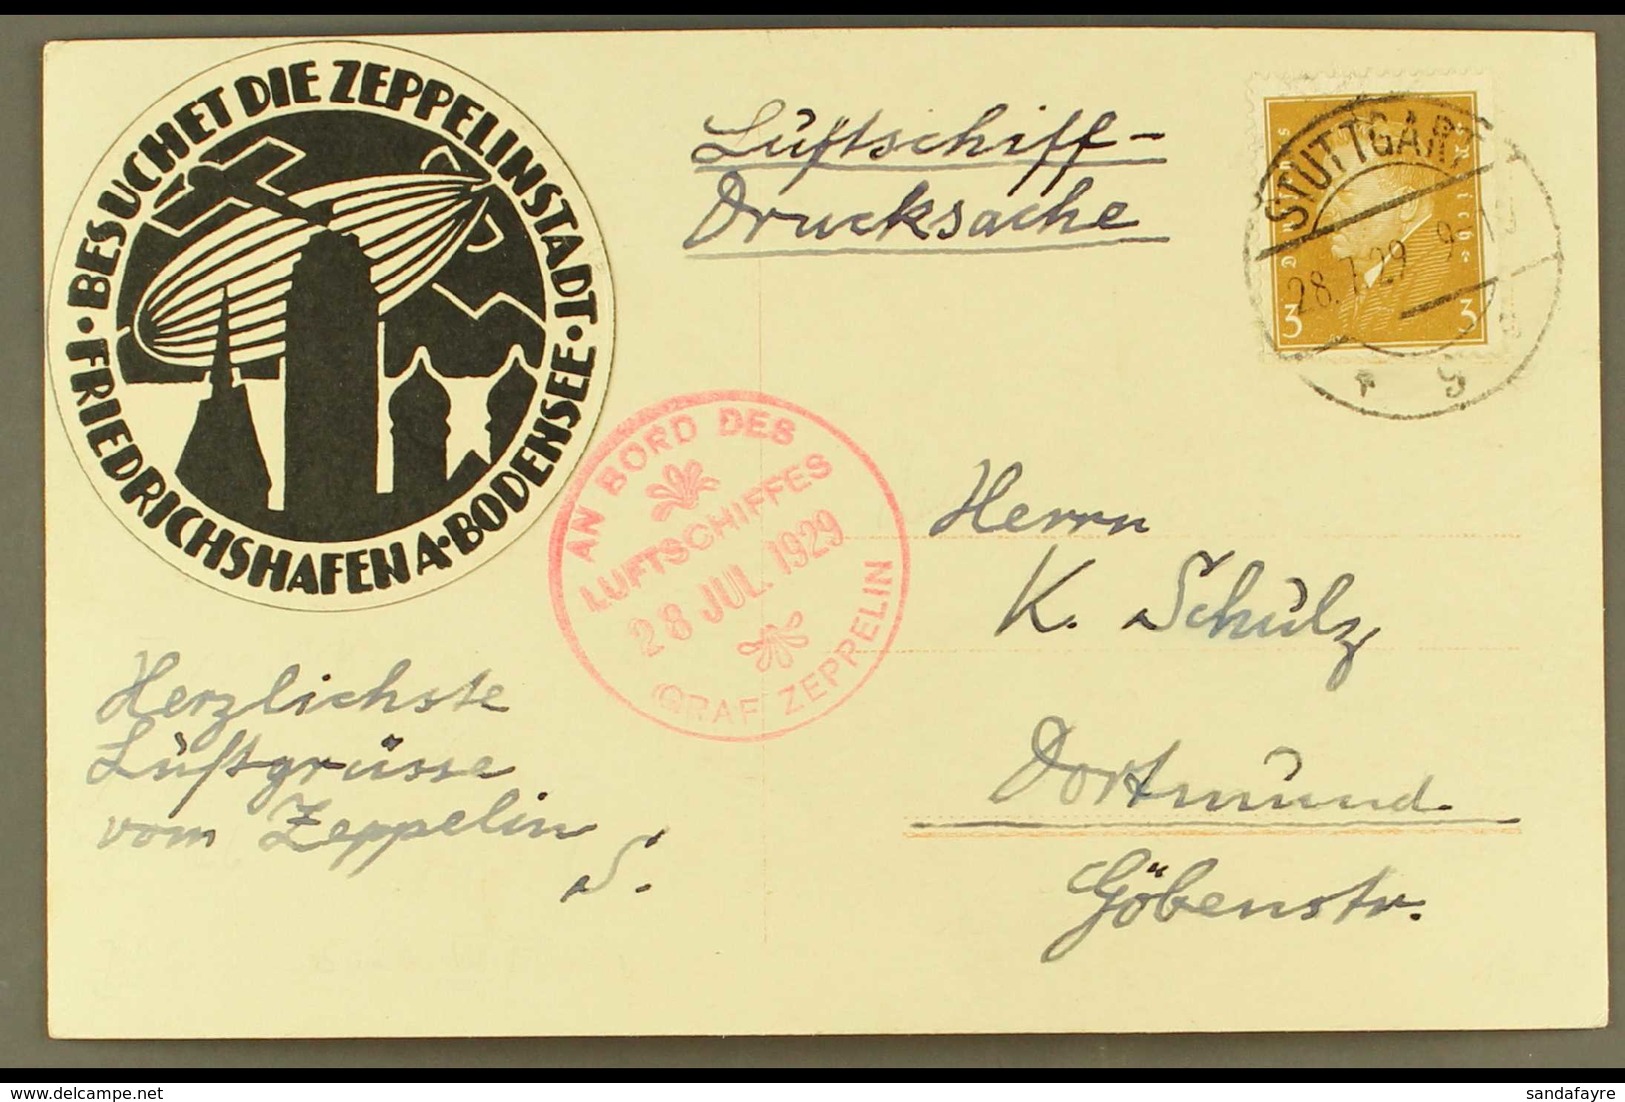 BESUCHET DIE ZEPPELINSTADT
FRIEDRICHSHAFEN A. BODENSEE
Luftschiff-
Drucksache
Deutsches Reich
3 3
STUTTGART
28.7.29 9-10
AN BORD DES
LUFTSCHIFFES
28 JUL. 1929
GRAF ZEPPELIN
Herrn
K. Schulz
Dortmund
Göbenstr.
Herzlichste
Luftgrüsse
vom Zeppelin
S.
delcampe.net
sandafayre